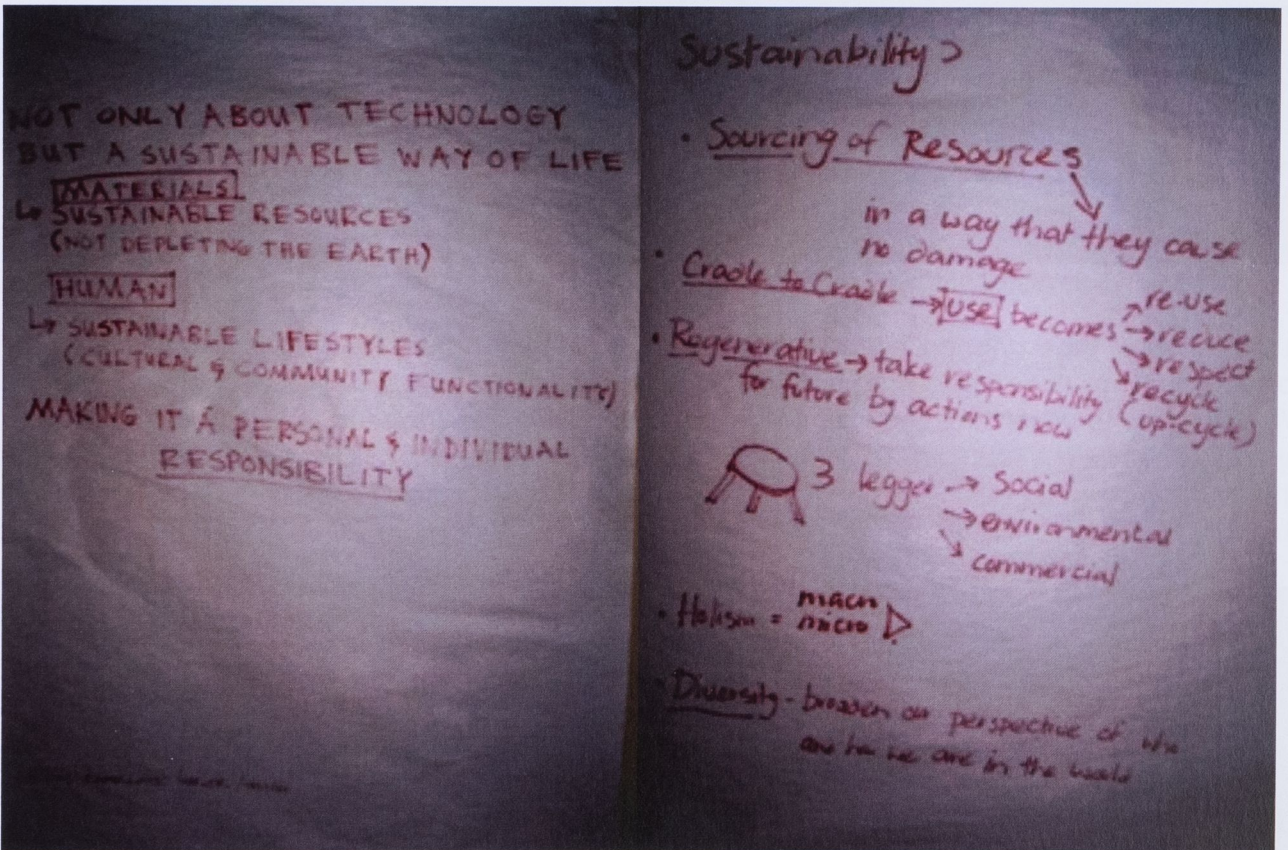 NOT ONLY ABOUT TECHNOLOGY
BUT A SUSTAINABLE WAY OF LIFE
MATERIALS
↳ SUSTAINABLE RESOURCES
(NOT DEPLETING THE EARTH)
HUMAN
↳ SUSTAINABLE LIFESTYLES
(CULTURAL & COMMUNITY FUNCTIONALITY)
MAKING IT A PERSONAL & INDIVIDUAL
RESPONSIBILITY
Sustainability >
• Sourcing of Resources
in a way that they cause
no damage
• Cradle to Cradle → use becomes → re-use
→ reduce
→ respect
→ recycle
(up-cycle)
• Regenerative → take responsibility
for future by actions now
3 legged → Social
→ environmental
→ commercial
• Holism = macro
micro
• Diversity - broaden our perspective of who
and how we are in the world